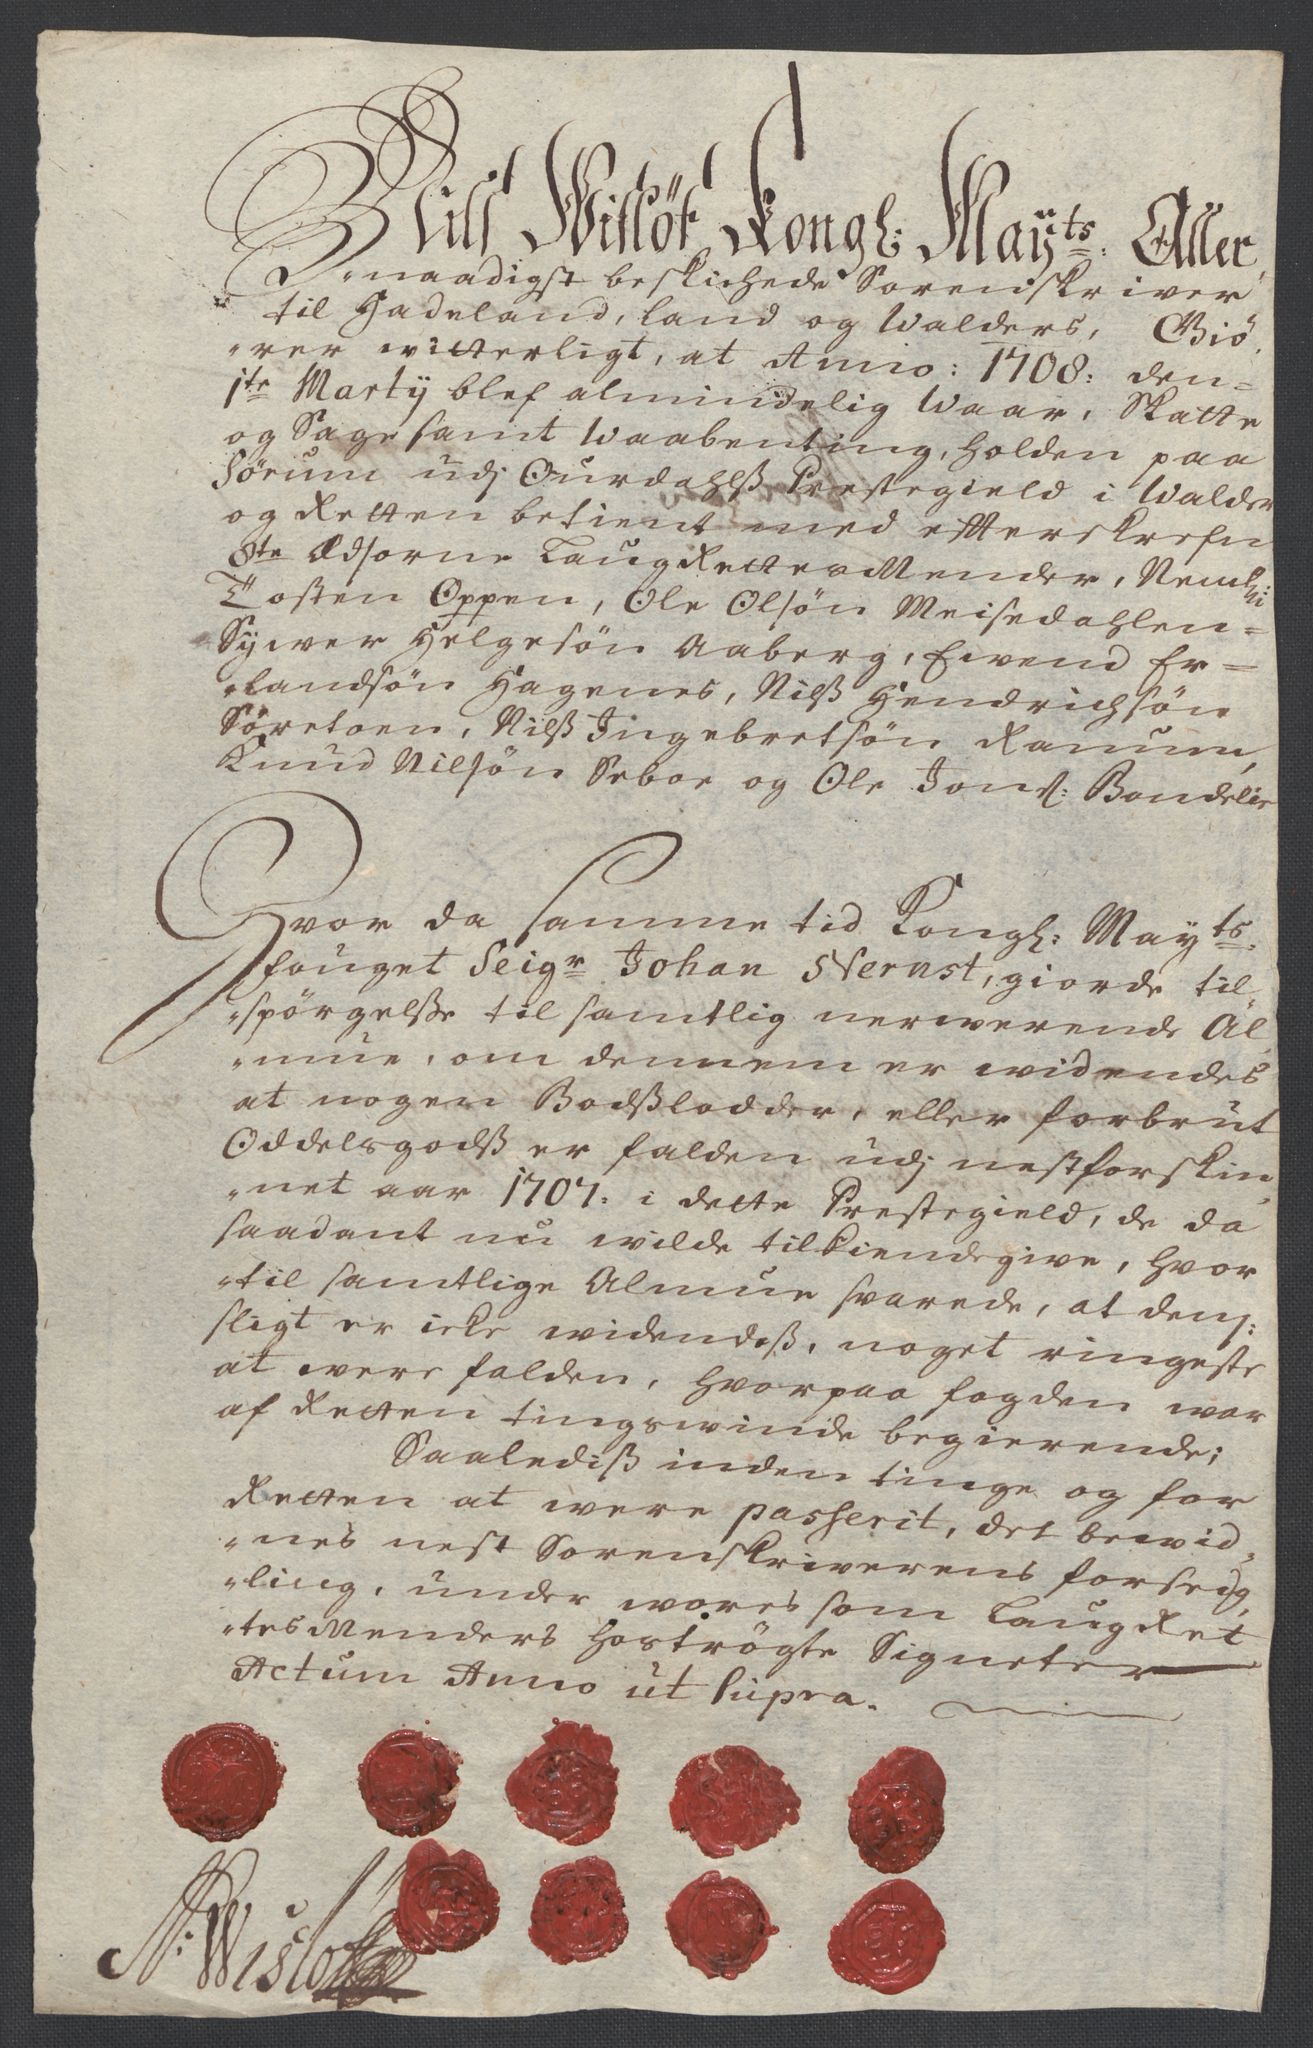 Nills Wislöf Kongl: Mayts: Aller
"naadigst beskichede Sorenskriver
til Hadeland, Land og Walders, Giö,
"rer witterligt, at Anno: 1708: den=
1te Martij blef almindelig Waar, Skatte
og Sage samt Waabenting, holden paa
Sörum udj Ourdahlß Prestegield i Walders
og Retten betient med effterskrefn
8te Edsorne LaugRettesMender, Neml:
Tosten Oppen, Ole Olsön Meisedahlen=
Sywer Helgesön Aaberg, Ewend Er=
"landsön Hagenes, Nilß Hendrichsön
Söretoen, Nilß Ingebretsön Ranum,
Knud Nilsön Seboe og Ole Jonß: Bondelie
Hvor da samme tid Kongl: Mayts:
fouget Seigr Johan Nernst, giorde til,
"spörgelße til samtlig nerwerende Al,
"mue, om dennem er widendes
at nogen Bödßlodder, eller forbrut
Oddelsgodß er falden udj nestforskin,
"net aar 1707: i dette Prestegield, de da
saadant nu wilde tilkiendegive, hvor
"til samtlige Almue svarede, at denß:
sligt er icke widendeß, noget ringeste
at were falden, hvorpaa fogden war
af Retten tingswinde begierende;
Saalediß inden tinge og for
Retten at were passerit, det bewid,
"nes nest Sorenskriwerens forseig,
"ling, under wores som LaugRet
"tesMenders hoströgte Signeter
Actum Anno ut Supra.
N: Wislöf